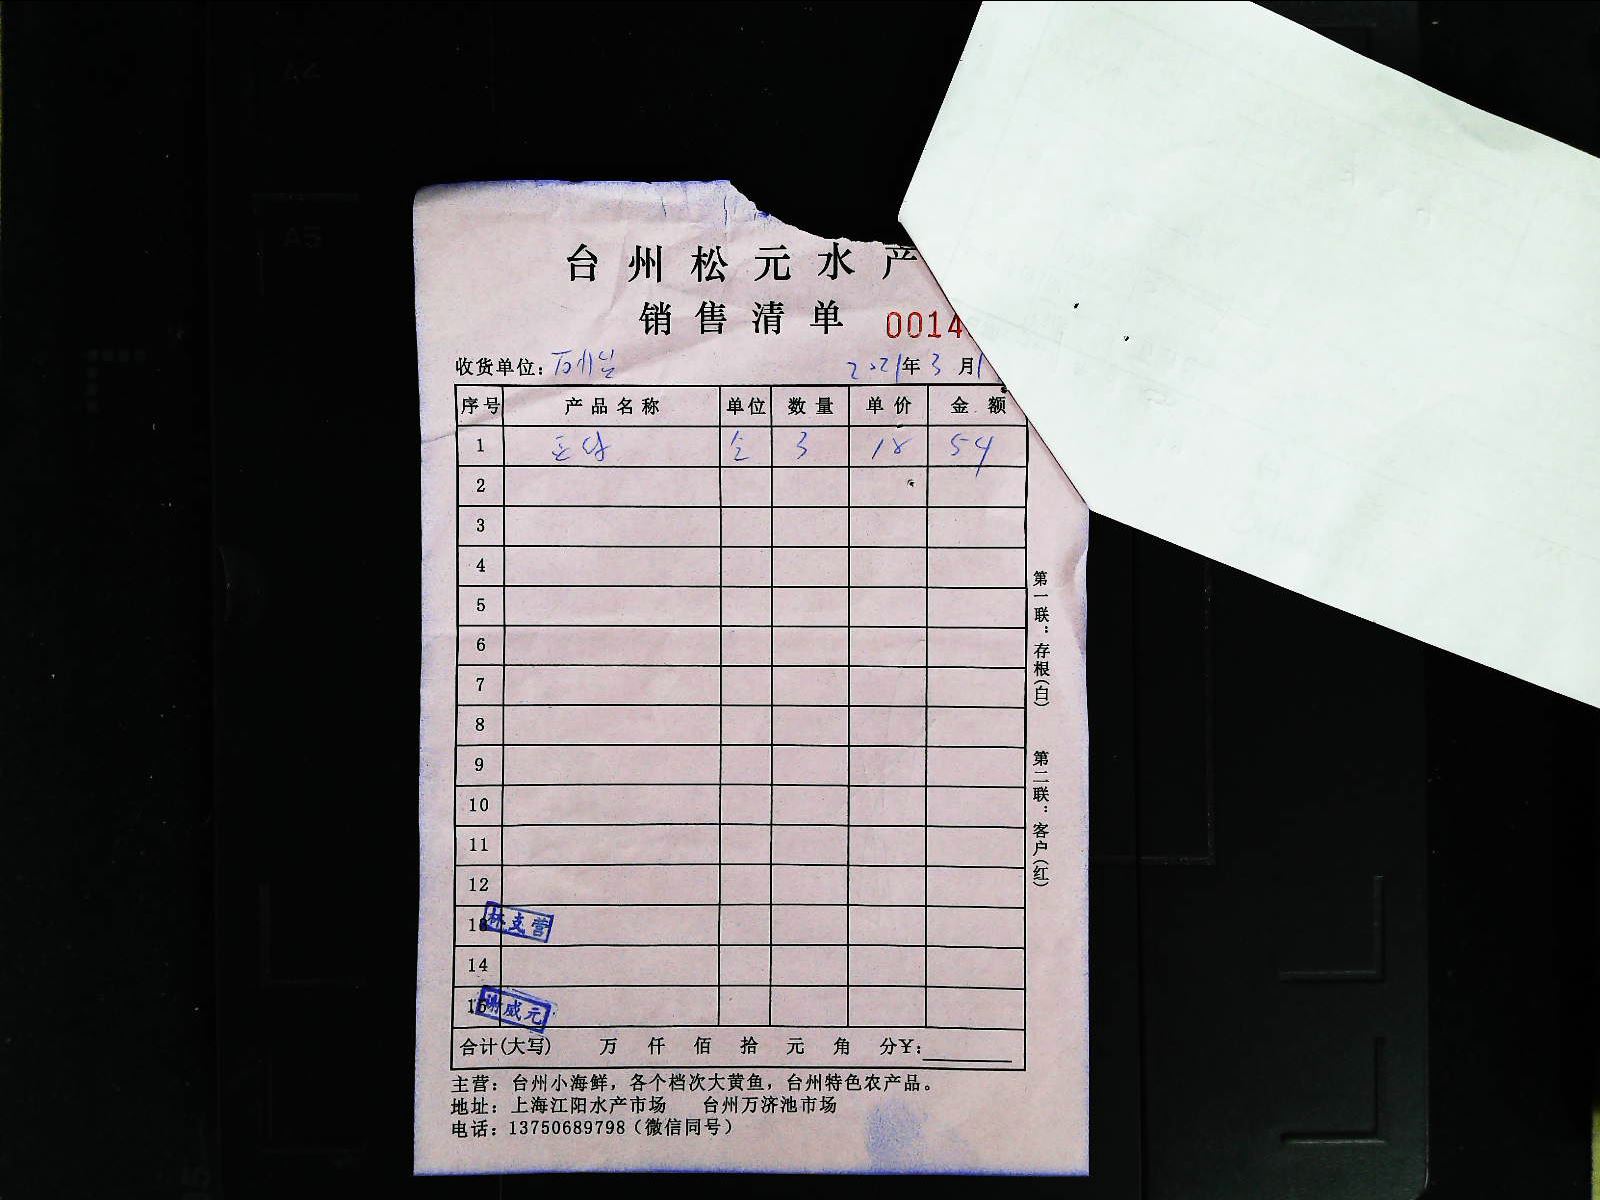 台州松元水产
销售清单 0014
收货单位: 2021年3月1
序号 产品名称 单位 数量 单价 金额
1 3 18 54
2
3
4
5
6
7
8
9
10
11
12
13 林支营
14
15 谢威元
合计(大写) 万 仟 佰 拾 元 角 分¥:
主营：台州小海鲜，各个档次大黄鱼，台州特色农产品。
地址：上海江阳水产市场 台州万济池市场
电话：13750689798（微信同号）
第一联：存根(白) 第二联：客户(红)
A5